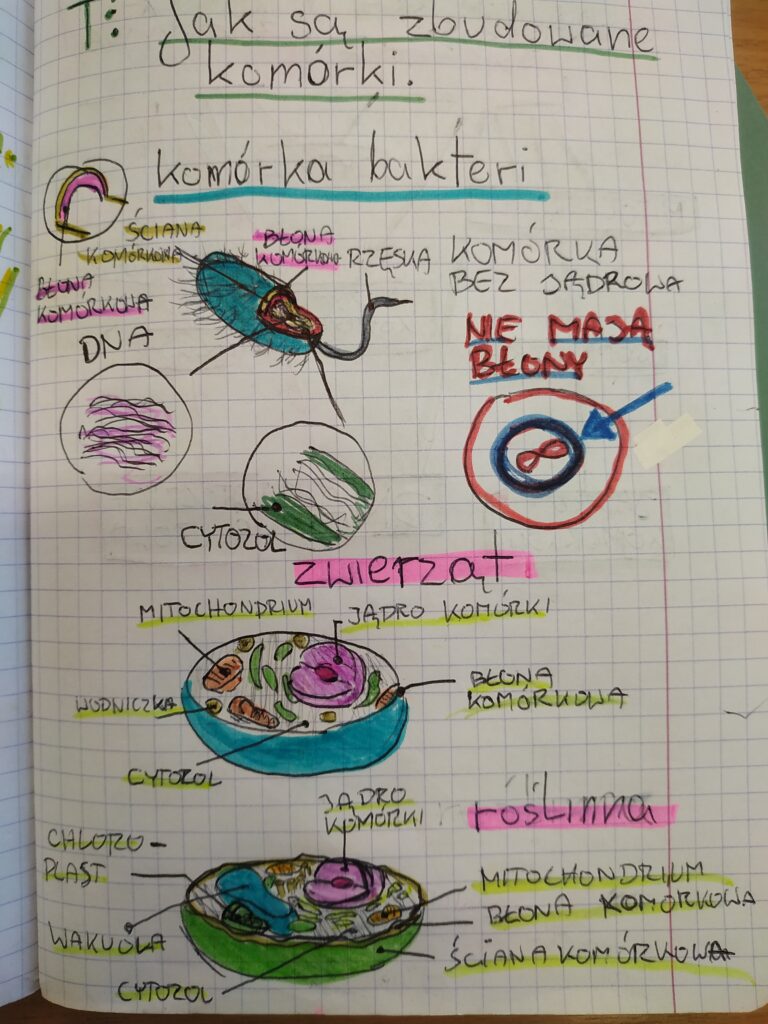 T: Jak są zbudowane
komórki.
komórka bakteri
ŚCIANA
KOMÓRKOWA
BŁONA
KOMÓRKOWA
RZĘSKA
KOMÓRKA
BEZ JĄDROWA
BŁONA
KOMÓRKOWA
NIE MAJĄ
BŁONY
DNA
CYTOZOL
zwierząt
MITOCHONDRIUM
JĄDRO KOMÓRKI
WODNICZKA
BŁONA
KOMÓRKOWA
CYTOZOL
roślinna
JĄDRO
KOMÓRKI
CHLORO-
PLAST
MITOCHONDRIUM
BŁONA KOMÓRKOWA
WAKUOLA
ŚCIANA KOMÓRKOWA
CYTOZOL